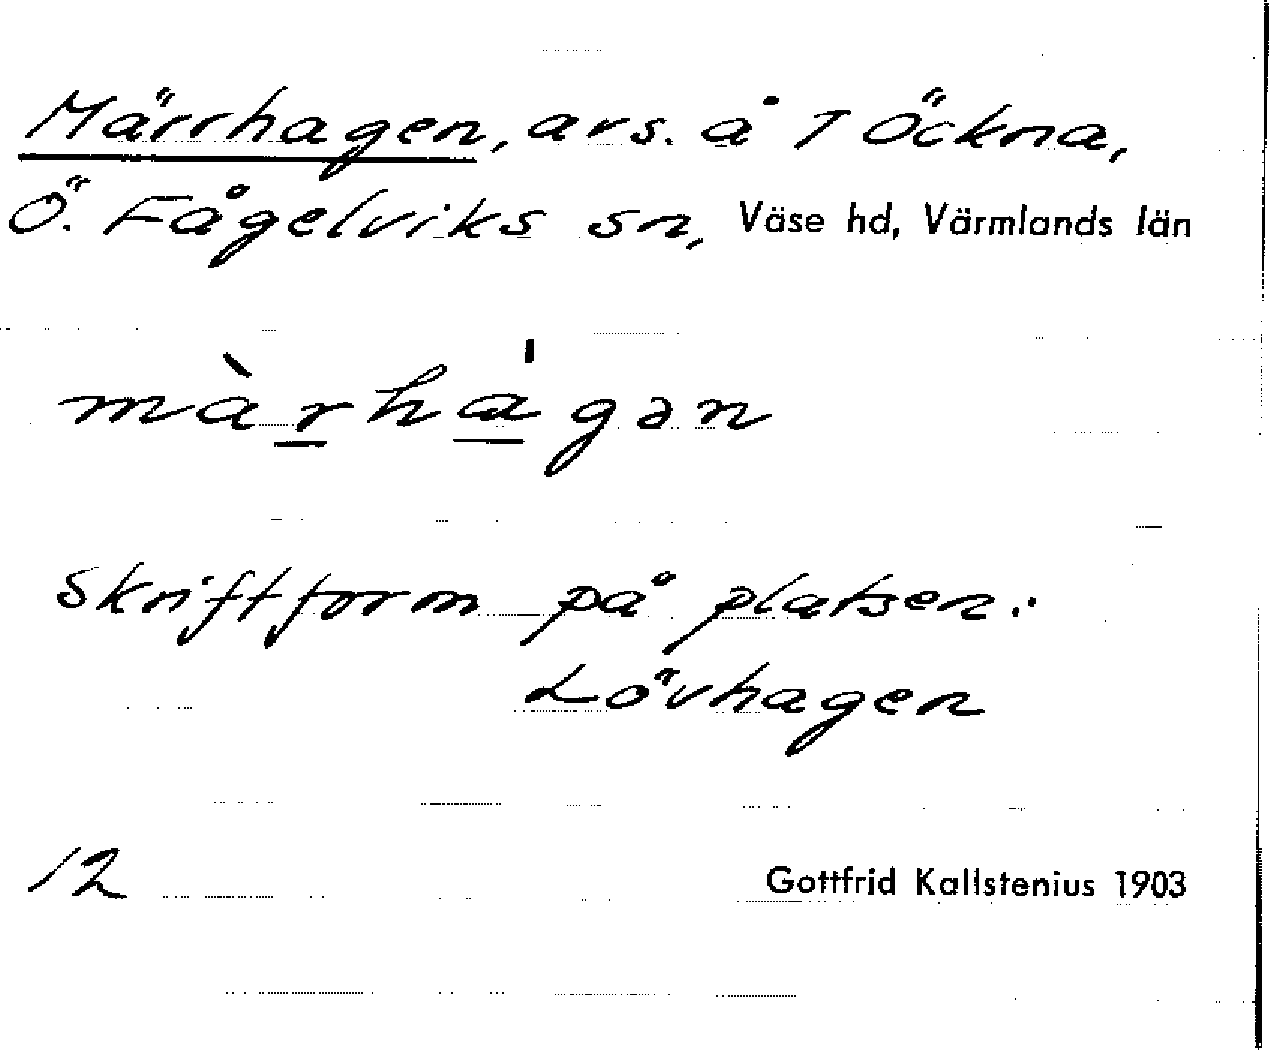 Märrhagen, avs. å 1 Öckna,
Ö. Fågelviks sn, Väse hd, Värmlands län
màrha̍gən
Skriftform på platsen:
Lövhagen
12 Gottfrid Kallstenius 1903